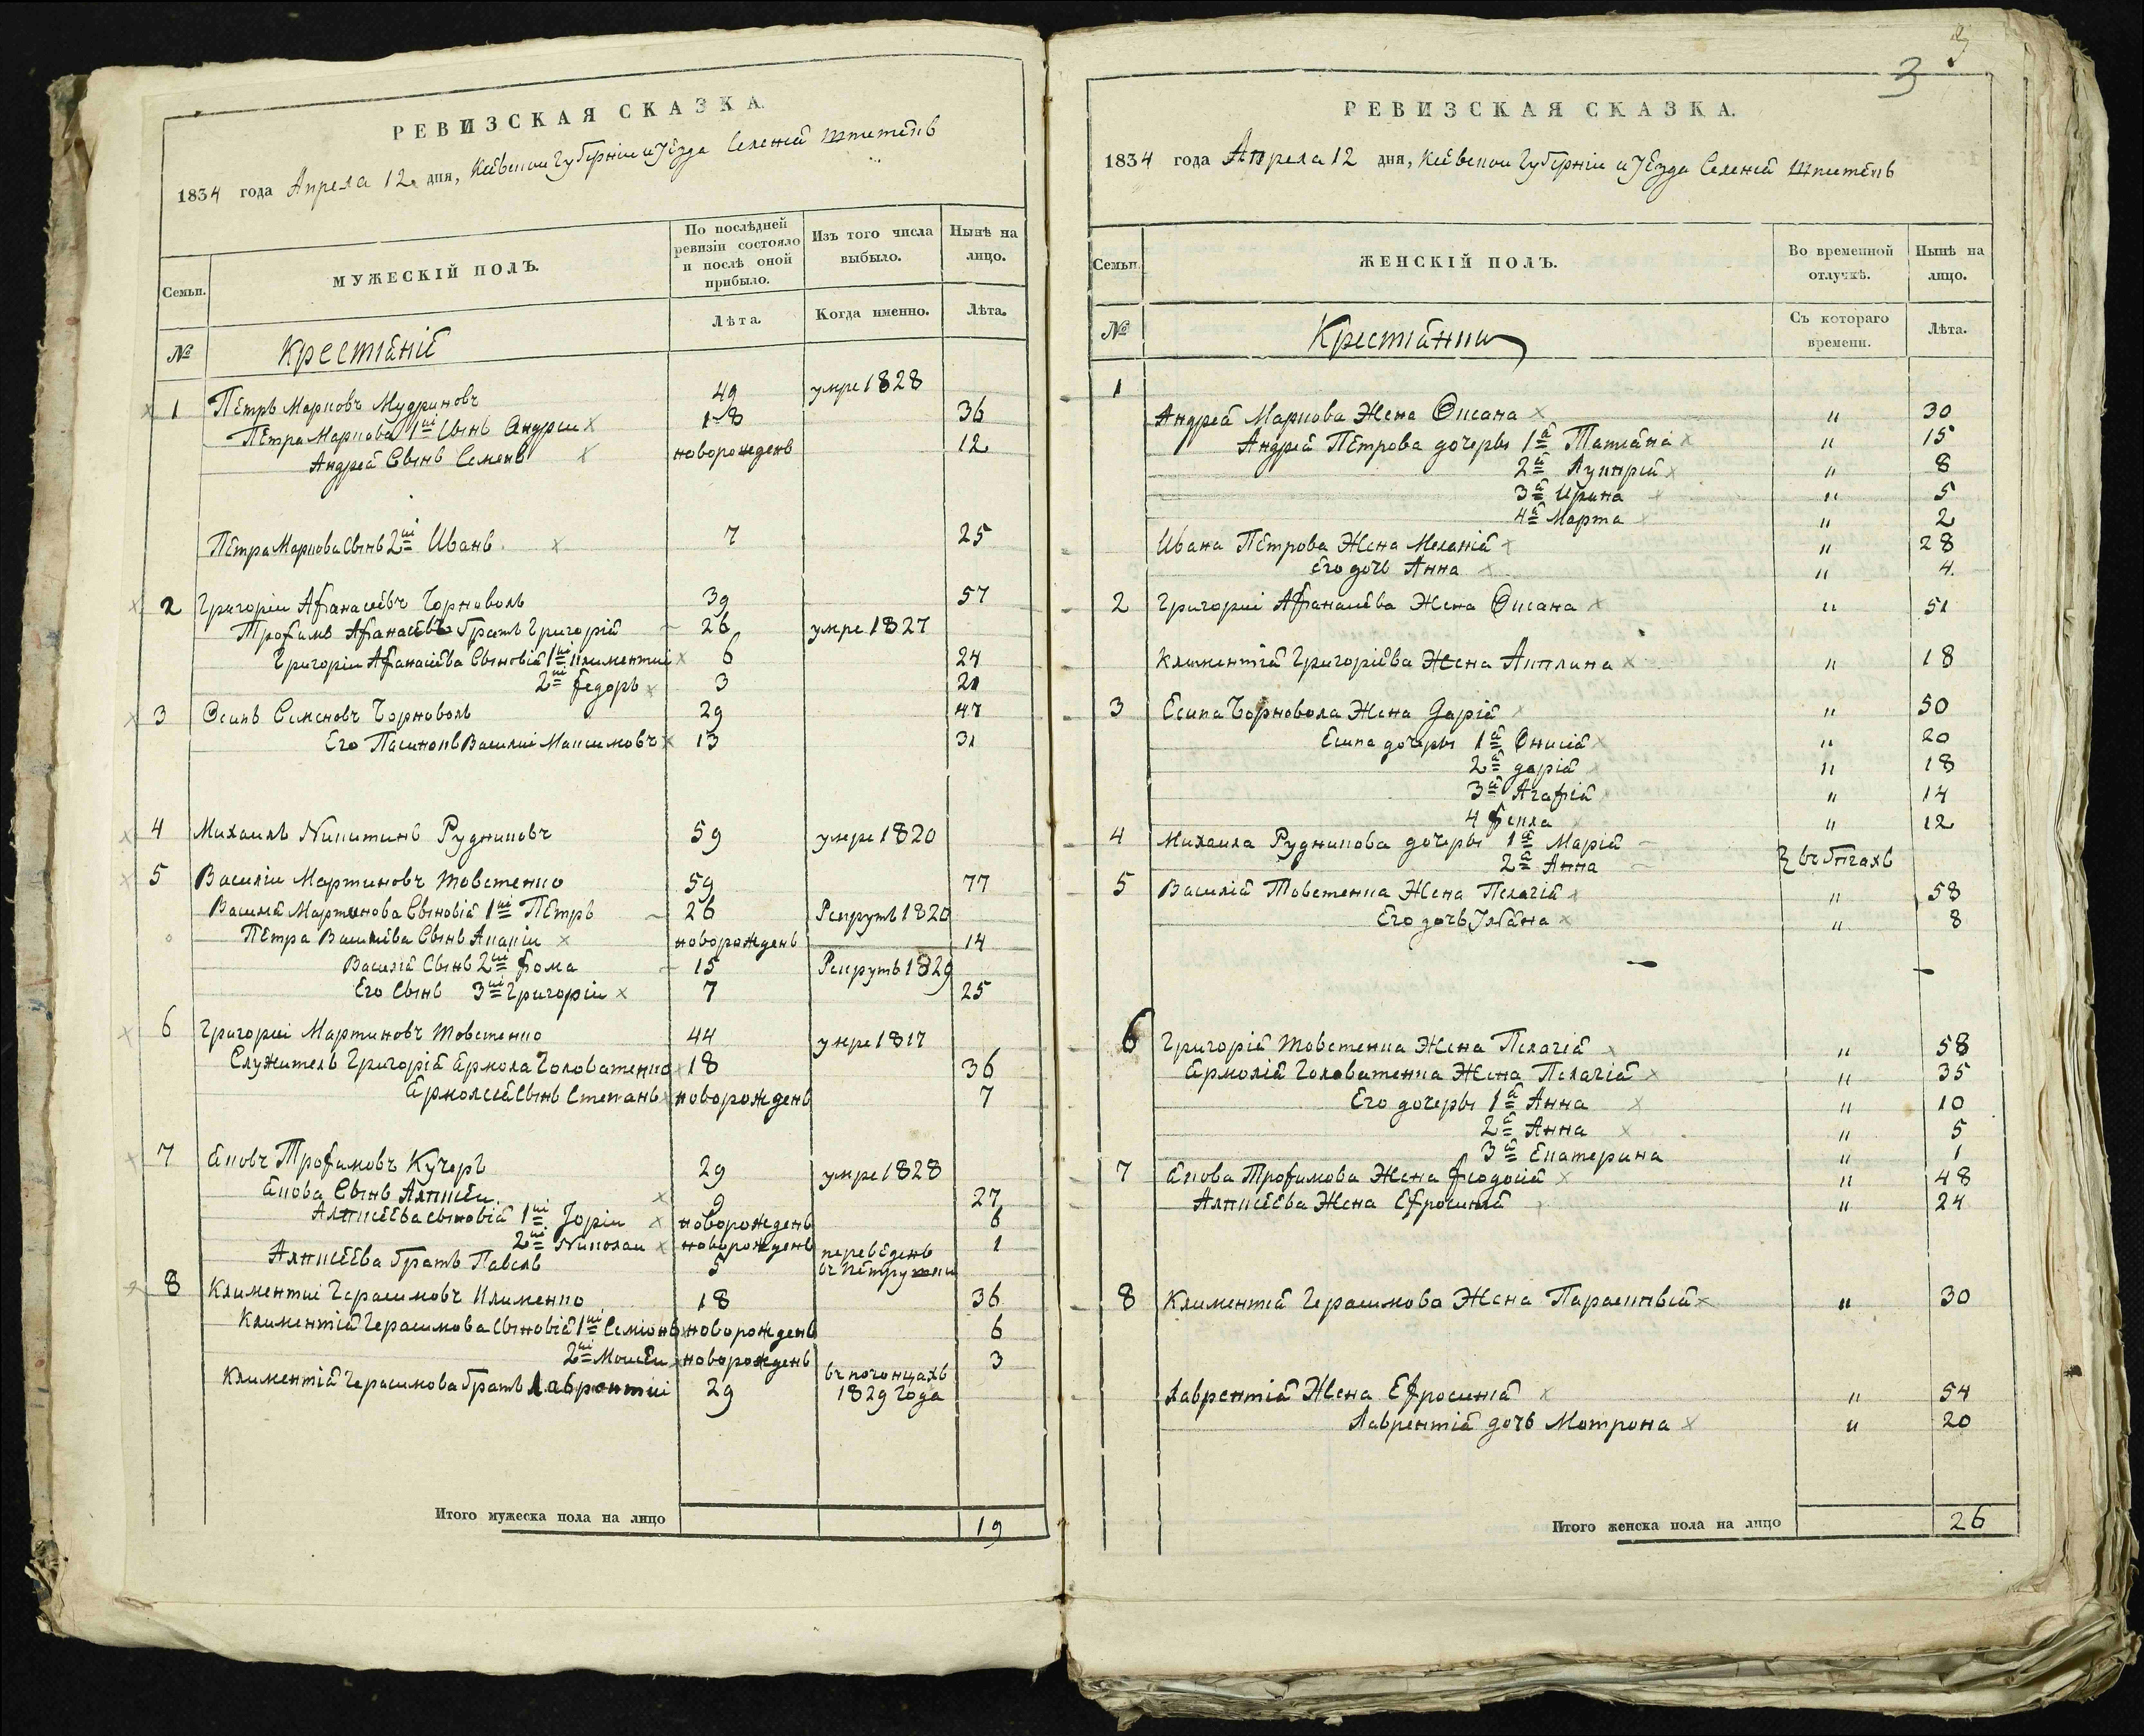 РЕВИЗСКАЯ СКАЗКА.
1834 года Апреля 12 дня, Киевской Губерніи и уезда Селеній
Семьи.
МУЖЕСКІЙ ПОЛЪ.
По послѣдней ревизіи состояло и послѣ оной прибыло.
Изъ того числа выбыло.
Нынѣ на лицо.
№
Лѣта.
Когда именно.
Лѣта.
Крестіаній
1 Петръ Марковъ Мудриковъ 49 умре 1828
Петра Маркова 1ій Сынъ Андреи 18 36
Андрей Сынъ Семенъ новорожденъ 12
Петра Маркова Сынъ 2ій Иванъ 7 25
2 Григоріи Афанасіевъ Чорноволъ 39 57
Трофимъ Афанасіевъ братъ Григорій 26 умре 1827
Григоріи Афанасіева Сыновій 1ій Климентій 6 24
2ій Федоръ 3 21
3 Осипъ Семеновъ Чорноволъ 29 47
Его Пасинокъ Василій Максимовъ 13 31
4 Михаилъ Никитинъ Рудниковъ 59 умре 1820
5 Василіи Мартиновъ Товстенко 59 77
Василій Мартинова Сыновій 1ій Петръ 26 Рекрутъ 1820
Петра Василіева Сынъ Ананіи новорожденъ 14
Василій Сынъ 2ій Фома 15 Рекрутъ 1829
Его Сынъ 3ій Григоріи 7 25
6 Григоріи Мартиновъ Товстенко 44 умре 1817
Служитель Григорій Ермола Головатенко 18 36
Ермолей Сынъ Степанъ новорожденъ 7
7 Яковъ Трофимовъ Кучеръ 29 умре 1828
Якова Сынъ Алексеи 9 27
Алексеева сыновій 1ій Юріи новорожденъ 6
2ій Николаи новорожденъ 1
Алексеева братъ Павелъ 5 переведенъ
въ
8 Климентіи Герасимовъ Клименко 18 36
Климентій Герасимова Сыновій 1ій Семіонъ новорожденъ 6
2ій Мойсеи новорожденъ 3
Климентій Герасимова братъ Лаврентіи 29 въ погонцахъ
1829 года
Итого мужеска пола на лицо 19
3
РЕВИЗСКАЯ СКАЗКА.
1834 года Апреля 12 дня, Киевской Губерніи и уезда Селеній
Семьи.
ЖЕНСКІЙ ПОЛЪ.
Во временной отлучкѣ.
Нынѣ на лицо.
№
Съ котораго времени.
Лѣта.
Крестіанки
1
Андрей Маркова Жена Оксана " 30
Андрей Петрова дочеры 1я Татіана " 15
2я Лукирій " 8
3я Ирина " 5
4я Марта " 2
Ивана Петрова Жена Меланій " 28
Его дочь Анна " 4
2 Григоріи Афанасіева Жена Оксана " 51
Климентій Григоріева Жена Акилина " 18
3 Есипа Чорновола Жена Дарій " 50
Есипа дочеры 1я Онисій " 20
2я дарій " 18
3я Агафій " 14
4 Фекла " 12
4 Михаила Рудникова дочеры 1я Марій
2я Анна въ бѣгахъ
5 Василій Товстенка Жена Пелагій " 58
Его дочь Уліана " 8
6 Григорій Товстенка Жена Пелагій " 58
Ермолій Головатенка Жена Пелагій " 35
Его дочеры 1я Анна " 10
2я Анна " 5
3я Екатерина " 1
7 Якова Трофимова Жена Феодосій " 48
Алексеева Жена Ефросиній " 24
8 Климентій Герасимова Жена Параскивій " 30
Лаврентій Жена Ефросиній " 54
Лаврентій дочь Мотрона " 20
Итого женска пола на лицо 26